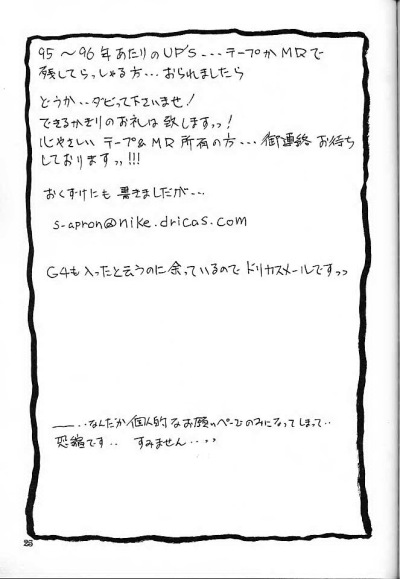 95〜96年あたりのUP'S---テープかMDで
残してらっしゃる方…おられましたら
どうか・・ダビって下さいませ!
できるかぎりのお礼は致しますッッ!
心やさしい テープ&MD 所有の方…御連絡 お待ち
しておりますッッ!!!
おくずけにも 書きましたが…
s-apron@nike.dricas.com
G4も入ったと云うのに余っているので ドリカスメールですッッ
――‥なんだか個人的なお願いぺーじのみになってしまって‥
恐縮です‥ すみません‥‥
25